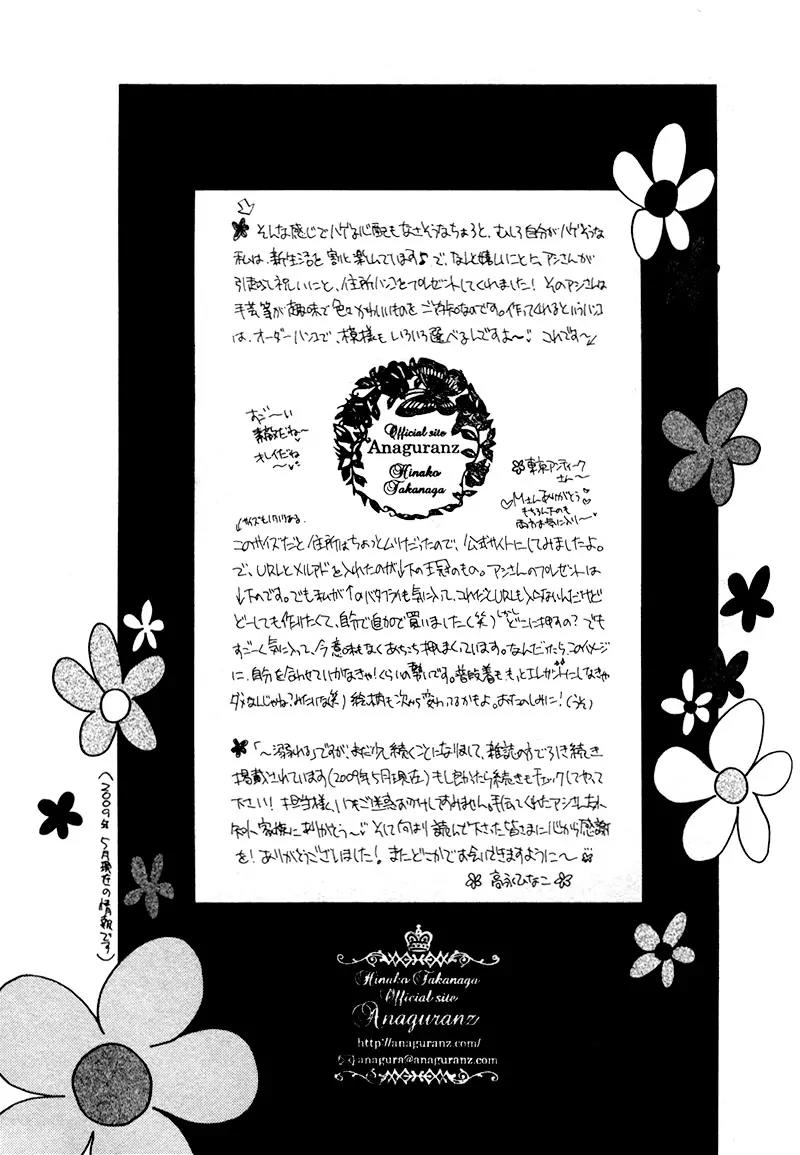 そんな感じでハゲな心配もなさそうなちょろと、むしろ自分がハゲそうな
私は、新生活を割と楽しんでいます♪で、なんと嬉しいことに、アシさんが
引越し祝いにと、住所ハンコをプレゼントしてくれました！そのアシさんは
手芸等が趣味で色々かわいいものをご存知なのです。作ってくれるというハンコ
は、オーダーハンコで、模様もいろいろ選べるんですよ〜 これです〜
すご〜い
素敵だね〜
キレイだね
〜
Official site
Anaguranz
Hinako
Takanaga
東京アンティーク
さん〜
Mさんありがとう
もちろん下のも
両方お気に入り〜
サイズもいろいろある
このサイズだと住所はちょっとムリだったので、公式サイトにしてみましたよ。
で、URLとメルアドを入れたのが↓下の王冠のもの。アシさんのプレゼントは
↓下のです。でも私が↑のバタフライも気に入って、これだとURLも入らないんだけど
どーしても作りたくて、自分で自力で買いました(笑) しかしどこに押すの？でも
すごーく気に入って、今意味もなくあちこち押しまくっています。なんだったら、このイメージ
に、自分を合わせていかなきゃ！くらいの勢いです。普段着ももっとエレガントにしなきゃ
ダメなんじゃね？みたいな(笑) 絵柄も次から変わってるかもよ。おたのしみに！(うそ)
「〜溺れる」ですが、まだ少し続くことになりまして、雑誌の方でひき続き
掲載されています(2009年5月現在)もしよかったら続きもチェックしてやって
下さい！担当様、いつもご迷惑おかけしてすみません。手伝ってくれたアシさん、友人
知人、家族にありがとう〜 そして何より読んで下さった皆さまに心から感謝
を！ありがとうございました！またどこかでお会いできますように〜
高永ひなこ
(2009年5月現在の情報です)
Hinako Takanaga
Official site
Anaguranz
http://anaguranz.com/
anagura@anaguranz.com